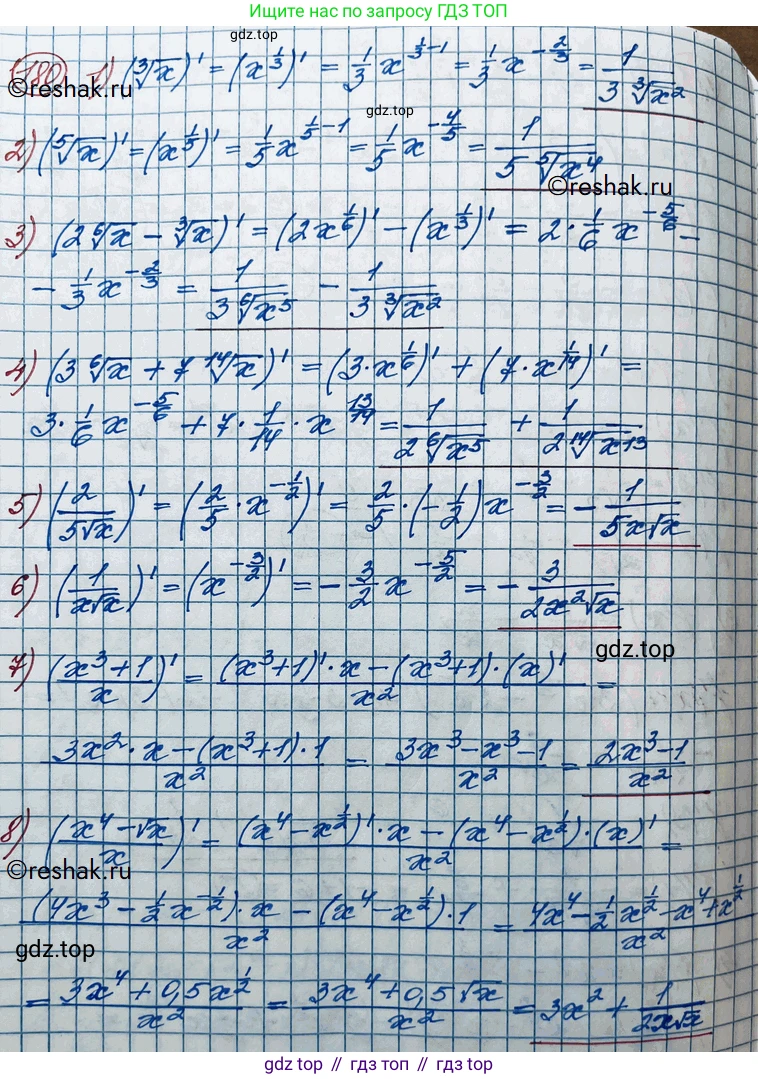 Ищите нас по запросу ГДЗ ТОП
gdz.top
180) 1) (∛x)' = (x^{1/3})' = 1/3 x^{1/3-1} = 1/3 x^{-2/3} = 1/(3∛x²)
©reshak.ru
gdz.top
2) (⁵√x)' = (x^{1/5})' = 1/5 x^{1/5-1} = 1/5 x^{-4/5} = 1/(5 ⁵√x⁴)
©reshak.ru
3) (2⁶√x - ∛x)' = (2x^{1/6})' - (x^{1/3})' = 2·1/6 x^{-5/6} -
- 1/3 x^{-2/3} = 1/(3⁶√x⁵) - 1/(3∛x²)
4) (3⁶√x + 7 ¹⁴√x)' = (3·x^{1/6})' + (7·x^{1/14})' =
3·1/6 x^{-5/6} + 7·1/14·x^{13/14} = 1/(2⁶√x⁵) + 1/(2¹⁴√x13)
5) (2/(5√x))' = (2/5·x^{-1/2})' = 2/5·(-1/2)x^{-3/2} = -1/(5x√x)
6) (1/(x√x))' = (x^{-3/2})' = -3/2 x^{-5/2} = -3/(2x²√x)
gdz.top
7) ((x³+1)/x)' = ((x³+1)'·x-(x³+1)·(x)')/x² =
(3x²·x-(x³+1)·1)/x² = (3x³-x³-1)/x² = (2x³-1)/x²
8) ((x⁴-√x)/x)' = ((x⁴-x^{1/2})'·x-(x⁴-x^{1/2})·(x)')/x² =
©reshak.ru
((4x³-1/2 x^{-1/2})·x-(x⁴-x^{1/2})·1)/x² = (4x⁴-1/2 x^{1/2}-x⁴+x^{1/2})/x²
gdz.top
= (3x⁴+0,5x^{1/2})/x² = (3x⁴+0,5√x)/x² = 3x²+1/(2x√x)
gdz top // гдз топ // gdz top